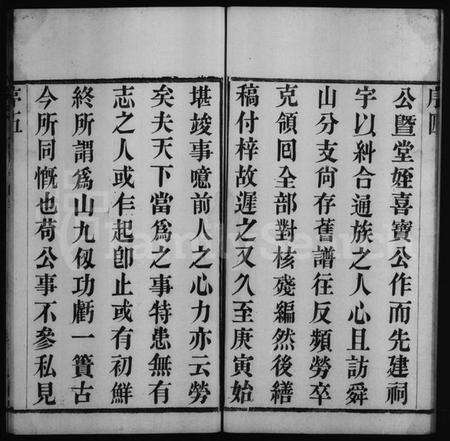 序四
公暨堂姪喜寶公作而先建祠
字以糾合通族之人心且訪舜
山分支尙存舊譜往反頻勞卒
克領囘全部對核殘編然後繕
稿付梓故遲之又久至庚寅始
堪竣事噫前人之心力亦云勞
矣夫天下當爲之事特患無有
志之人或乍起卽止或有初鮮
終所謂爲山九仭功虧一簣古
今所同慨也苟公事不參私見
序五